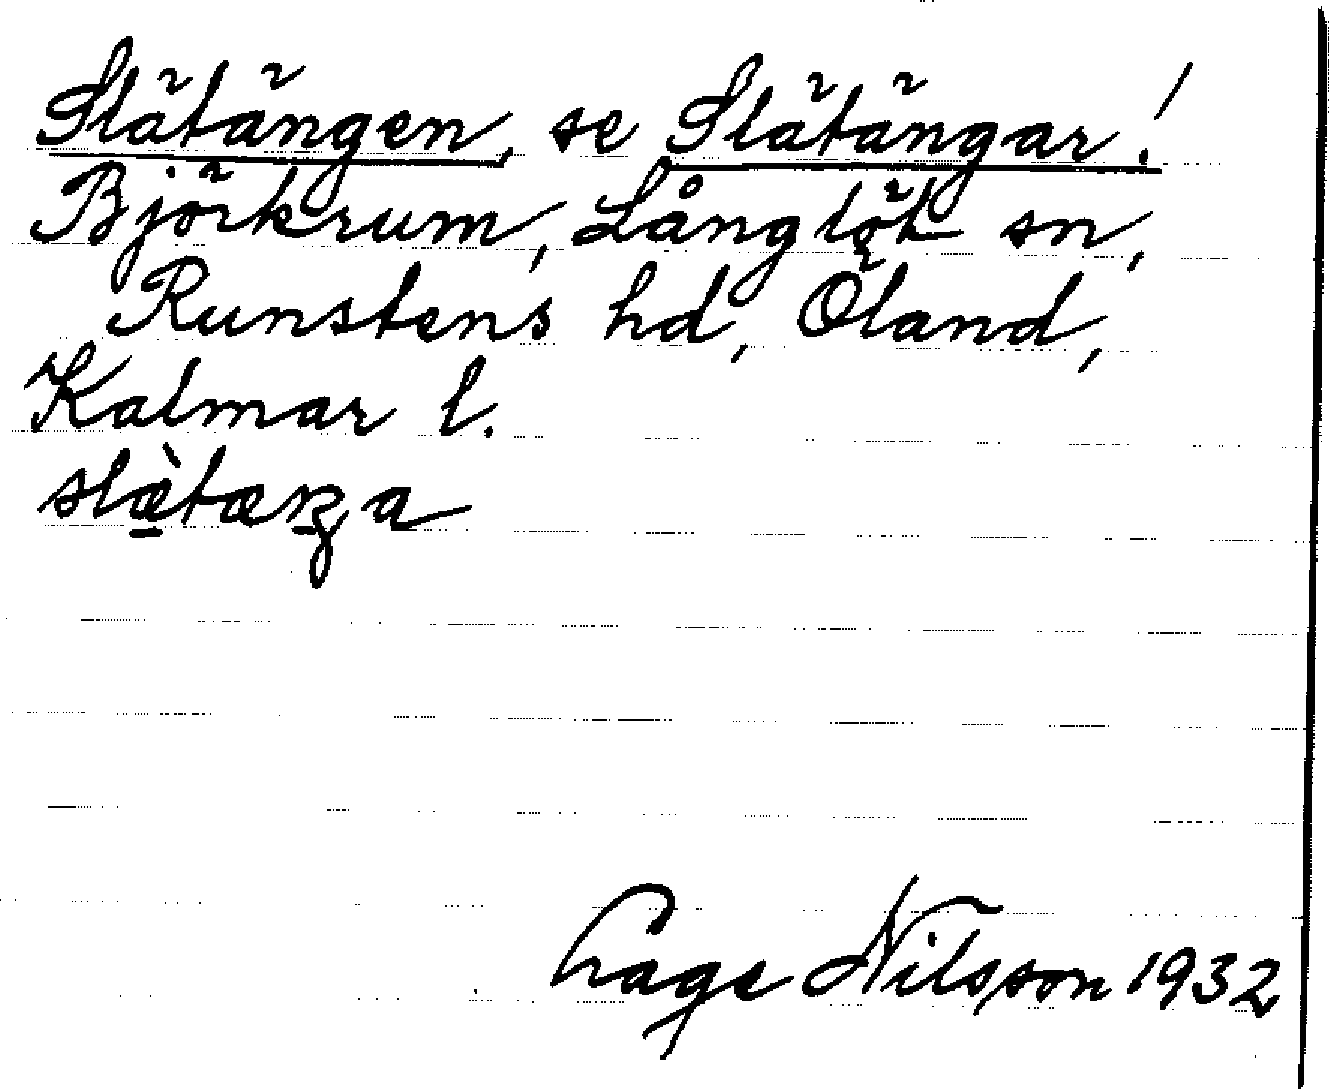 Slätängen, se Slätängar!
Björkrum, Långlöt sn,
Runstens hd, Öland,
Kalmar l.
slæ̠̀tæŋa
Lage Nilsson 1932